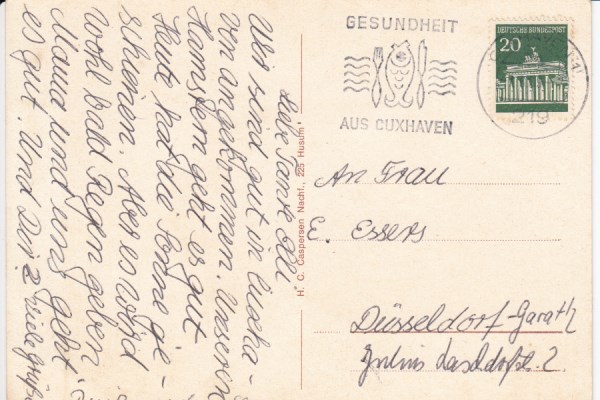 Liebe Tante Elli
Wir sind gut in Cuxha-
ven angekommen. Unseren
Hamstern geht es gut
Heute hat die Sonne ge-
schienen. Aber es wird
wohl bald Regen geben.
Mama und uns geht
es gut. Und Dir? Viele Grüße
H. C. Caspersen Nachf., 225 Husum
GESUNDHEIT
AUS CUXHAVEN
DEUTSCHE BUNDESPOST
20
219
An Frau
E. Essers
Düsseldorf-Garath
2.